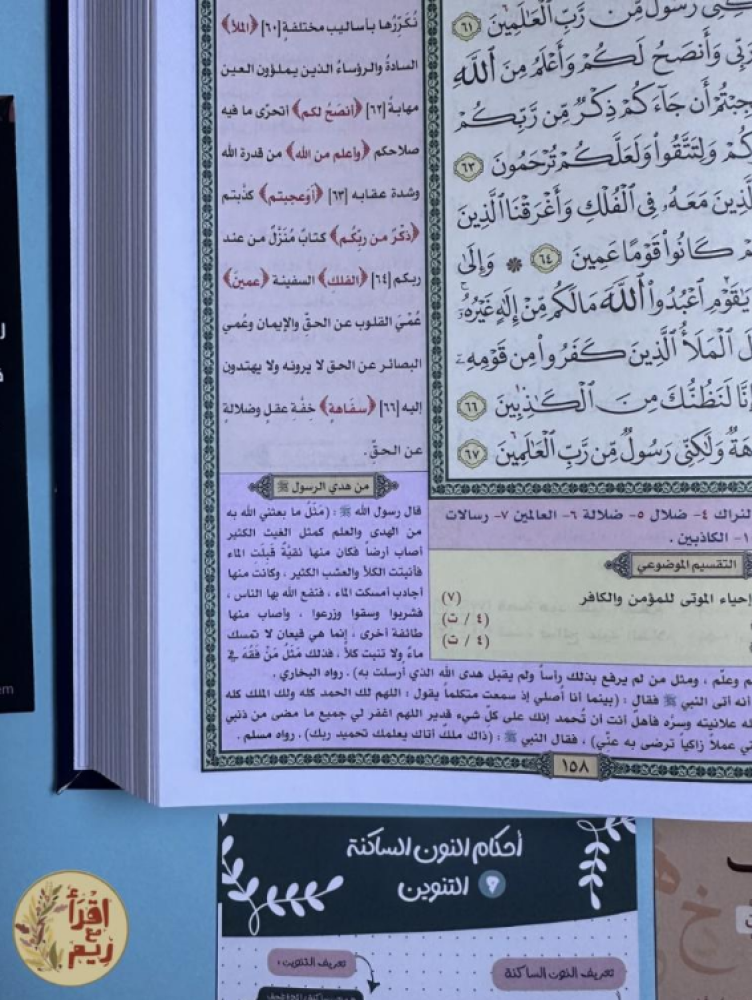 رَسُولٌ مِّن رَّبِّ الْعَالَمِينَ ٦١
رَبِّي وَأَنصَحُ لَكُمْ وَأَعْلَمُ مِنَ اللَّهِ
أَن جَاءَكُمْ ذِكْرٌ مِّن رَّبِّكُمْ
وَلِتَتَّقُوا وَلَعَلَّكُمْ تُرْحَمُونَ ٦٣
مَعَهُ فِي الْفُلْكِ وَأَغْرَقْنَا الَّذِينَ
كَانُوا قَوْمًا عَمِينَ ٦٤ ۞ وَإِلَىٰ
يَٰقَوْمِ اعْبُدُوا اللَّهَ مَا لَكُم مِّنْ إِلَٰهٍ غَيْرُهُ
الْمَلَأُ الَّذِينَ كَفَرُوا مِن قَوْمِهِ
لَنَظُنُّكَ مِنَ الْكَٰذِبِينَ ٦٦
وَلَٰكِنِّي رَسُولٌ مِّن رَّبِّ الْعَٰلَمِينَ ٦٧
نُكَرِّرُها بأساليب مختلفةٍ [٦٠] ﴿الملأ﴾
السادةُ والرؤساءُ الذين يملؤون العين
مهابةً [٦٢] ﴿أنصحُ لكم﴾ أتحرّى ما فيه
صلاحكم ﴿وأعلم من الله﴾ من قدرة الله
وشدة عقابه [٦٣] ﴿أوَعجبتم﴾ كذّبتم
﴿ذكرٌ من ربّكم﴾ كتابٌ مُنَزَّلٌ من عند
ربكم [٦٤] ﴿الفلك﴾ السفينة ﴿عمينَ﴾
عُمْيَ القلوب عن الحقِّ والإيمان وعُمي
البصائر عن الحق لا يرونه ولا يهتدون
إليه [٦٦] ﴿سفاهةٍ﴾ خِفَّة عقلٍ وضلالةٍ
عن الحقِّ .
لنراك ٤- ضلال ٥- ضلالة ٦- العالمين ٧- رسالات
الكاذبين .
التقسيم الموضوعي
إحياء الموتى للمؤمن والكافر (٧)
(٤ / ت)
(٤ / ت)
من هدي الرسول ﷺ
قال رسول الله ﷺ : (مَثَلُ ما بعثني الله به
من الهدى والعلم كمثل الغيث الكثير
أصاب أرضاً فكان منها نقيَّةٌ قَبِلَتِ الماء
فأنبتت الكلأ والعشب الكثير ، وكانت منها
أجادب أمسكت الماء ، فنفع الله بها الناس ،
فشربوا وسقوا وزرعوا ، وأصاب منها
طائفة أخرى ، إنما هي قيعان لا تمسك
ماءً ولا تنبت كلأً ، فذلك مَثَلُ مَنْ فَقُهَ في
وعلّم ، ومثل من لم يرفع بذلك رأساً ولم يقبل هدى الله الذي أرسلت به) . رواه البخاري .
أنه أتى النبي ﷺ فقال : (بينما أنا أصلي إذ سمعت متكلماً يقول : اللهم لك الحمد كله ولك الملك كله
علانيته وسرُّه فأهلٌ أنت أن تُحمد إنك على كلِّ شيء قدير اللهم اغفر لي جميع ما مضى من ذنبي
عملاً زاكياً ترضى به عنّي) ، فقال النبي ﷺ : (ذاك ملك أتاك يعلمك تحميد ربك) . رواه مسلم .
١٥٨
أحكام النون الساكنة
و التنوين
تعريف النون الساكنة
تعريف التنوين :
اقرأ
مع
ريم